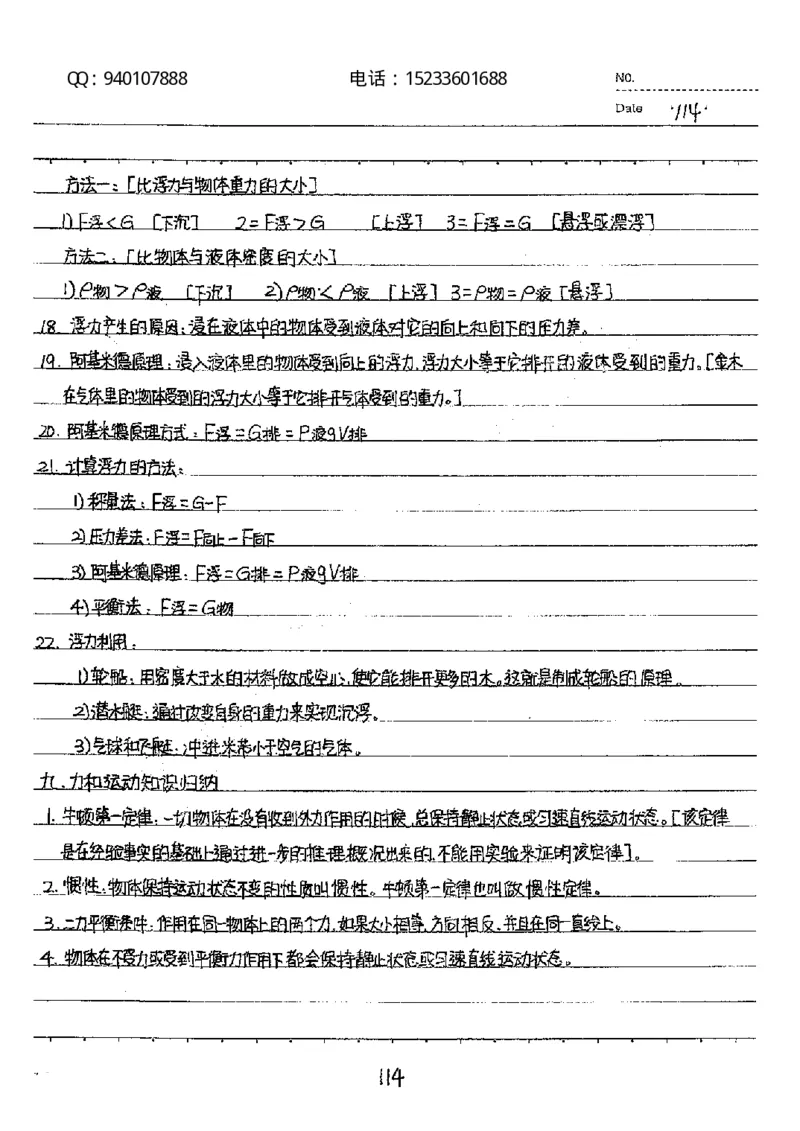 QQ：940107888 电话：15233601688 NO.
Date 114
方法一：[比浮力与物体重力的大小]
1) F浮<G [下沉] 2= F浮>G [上浮] 3= F浮=G [悬浮或漂浮]
方法二：[比物体与液体密度的大小]
1) ρ物>ρ液 [下沉] 2) ρ物<ρ液 [上浮] 3= ρ物=ρ液 [悬浮]
18. 浮力产生的原因：浸在液体中的物体受到液体对它的向上和向下的压力差。
19. 阿基米德原理：浸入液体里的物体受到向上的浮力,浮力大小等于它排开的液体受到的重力。[金木
在气体里的物体受到的浮力大小等于它排开气体受到的重力。]
20. 阿基米德原理方式：F浮=G排=P液gV排
21. 计算浮力的方法：
1) 秤量法：F浮=G-F
2) 压力差法：F浮=F向上-F向下
3) 阿基米德原理：F浮=G排=P液gV排
4) 平衡法：F浮=G物
22. 浮力利用：
1) 轮船：用密度大于水的材料做成空心,使它能排开更多的水。这就是制成轮船的原理。
2) 潜水艇：通过改变自身的重力来实现沉浮。
3) 气球和飞艇：冲进米蒂小于空气的气体。
九.力和运动知识归纳
1. 牛顿第一定律：一切物体在没有收到外力作用的时候,总保持静止状态或匀速直线运动状态。[该定律
是在经验事实的基础上通过进一步的推理概况出来的,不能用实验来证明该定律]。
2. 惯性：物体保持运动状态不变的性质叫惯性。牛顿第一定律也叫做惯性定律。
3. 二力平衡条件：作用在同一物体上的两个力,如果大小相等,方向相反、并且在同一直线上。
4. 物体在不受力或受到平衡力作用下都会保持静止状态或匀速直线运动状态。
114